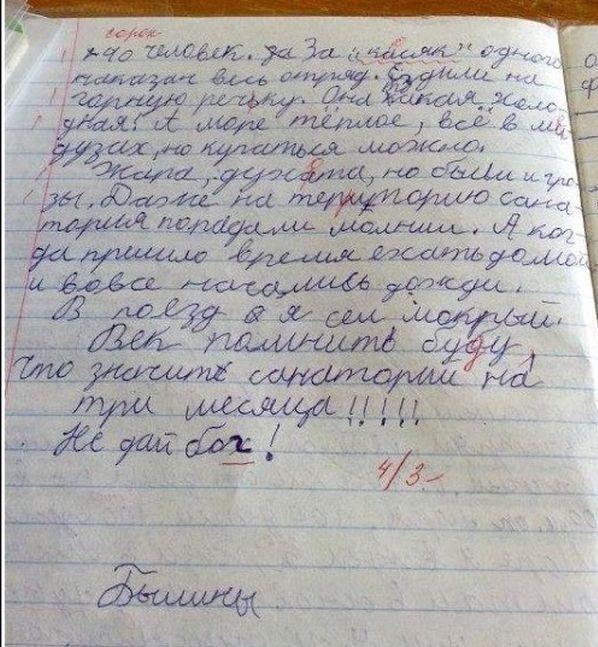 сорок
40 человек. За За "касяк" одного
наказан весь отряд. Ездили на
горную речьку. Она такая холо-
дная! А море тёплое, всё в ме-
дузах, но купаться можно.
Жара, духота, но были и гро-
зы. Даже на территорию сана-
тория попадали молнии. А ког-
да пришло время ехать домой
и вовсе начались дожди.
В поезд я сел мокрый.
Век помнить буду,
что значит санаторий на
три месяца!!!!!
Не дай бох!
4/3-
Былины